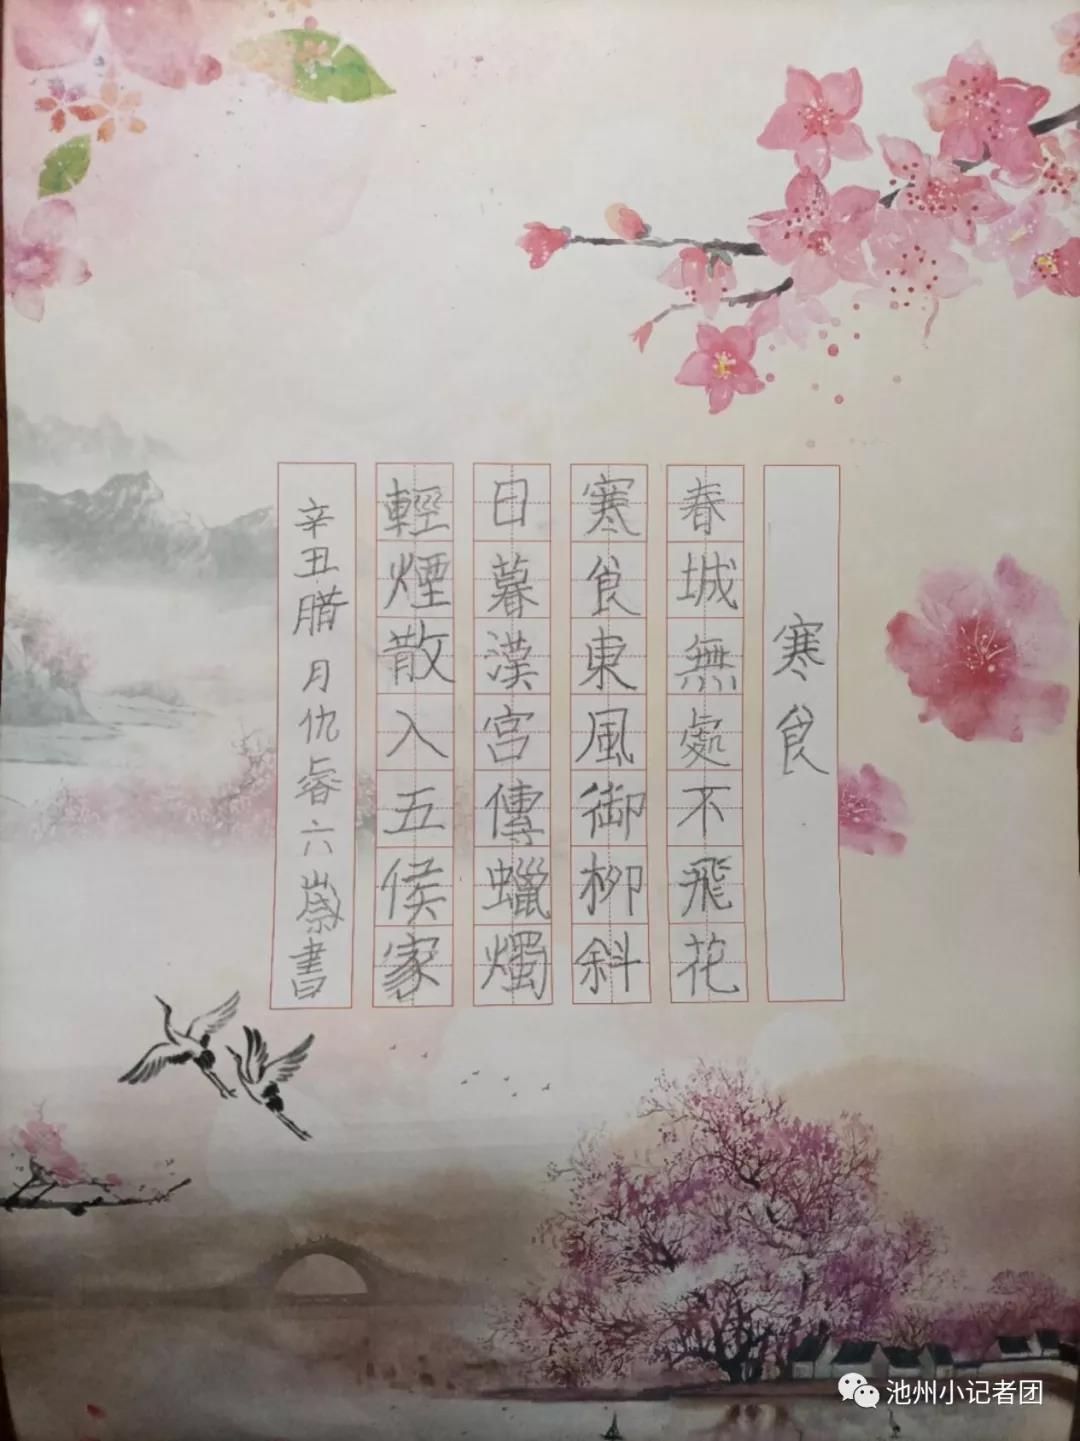 寒食
春城無處不飛花
寒食東風御柳斜
日暮漢宮傳蠟燭
輕煙散入五侯家
辛丑腊月仇睿六歲書
池州小记者团